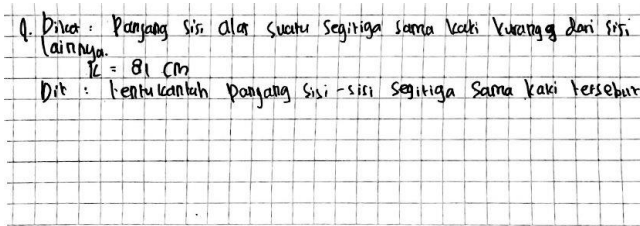 9. Diket : Panjang sisi alas suatu segitiga sama kaki kurang 9 dari sisi
lainnya.
K = 81 cm
Dit : Tentukanlah panjang sisi-sisi segitiga sama kaki tersebut